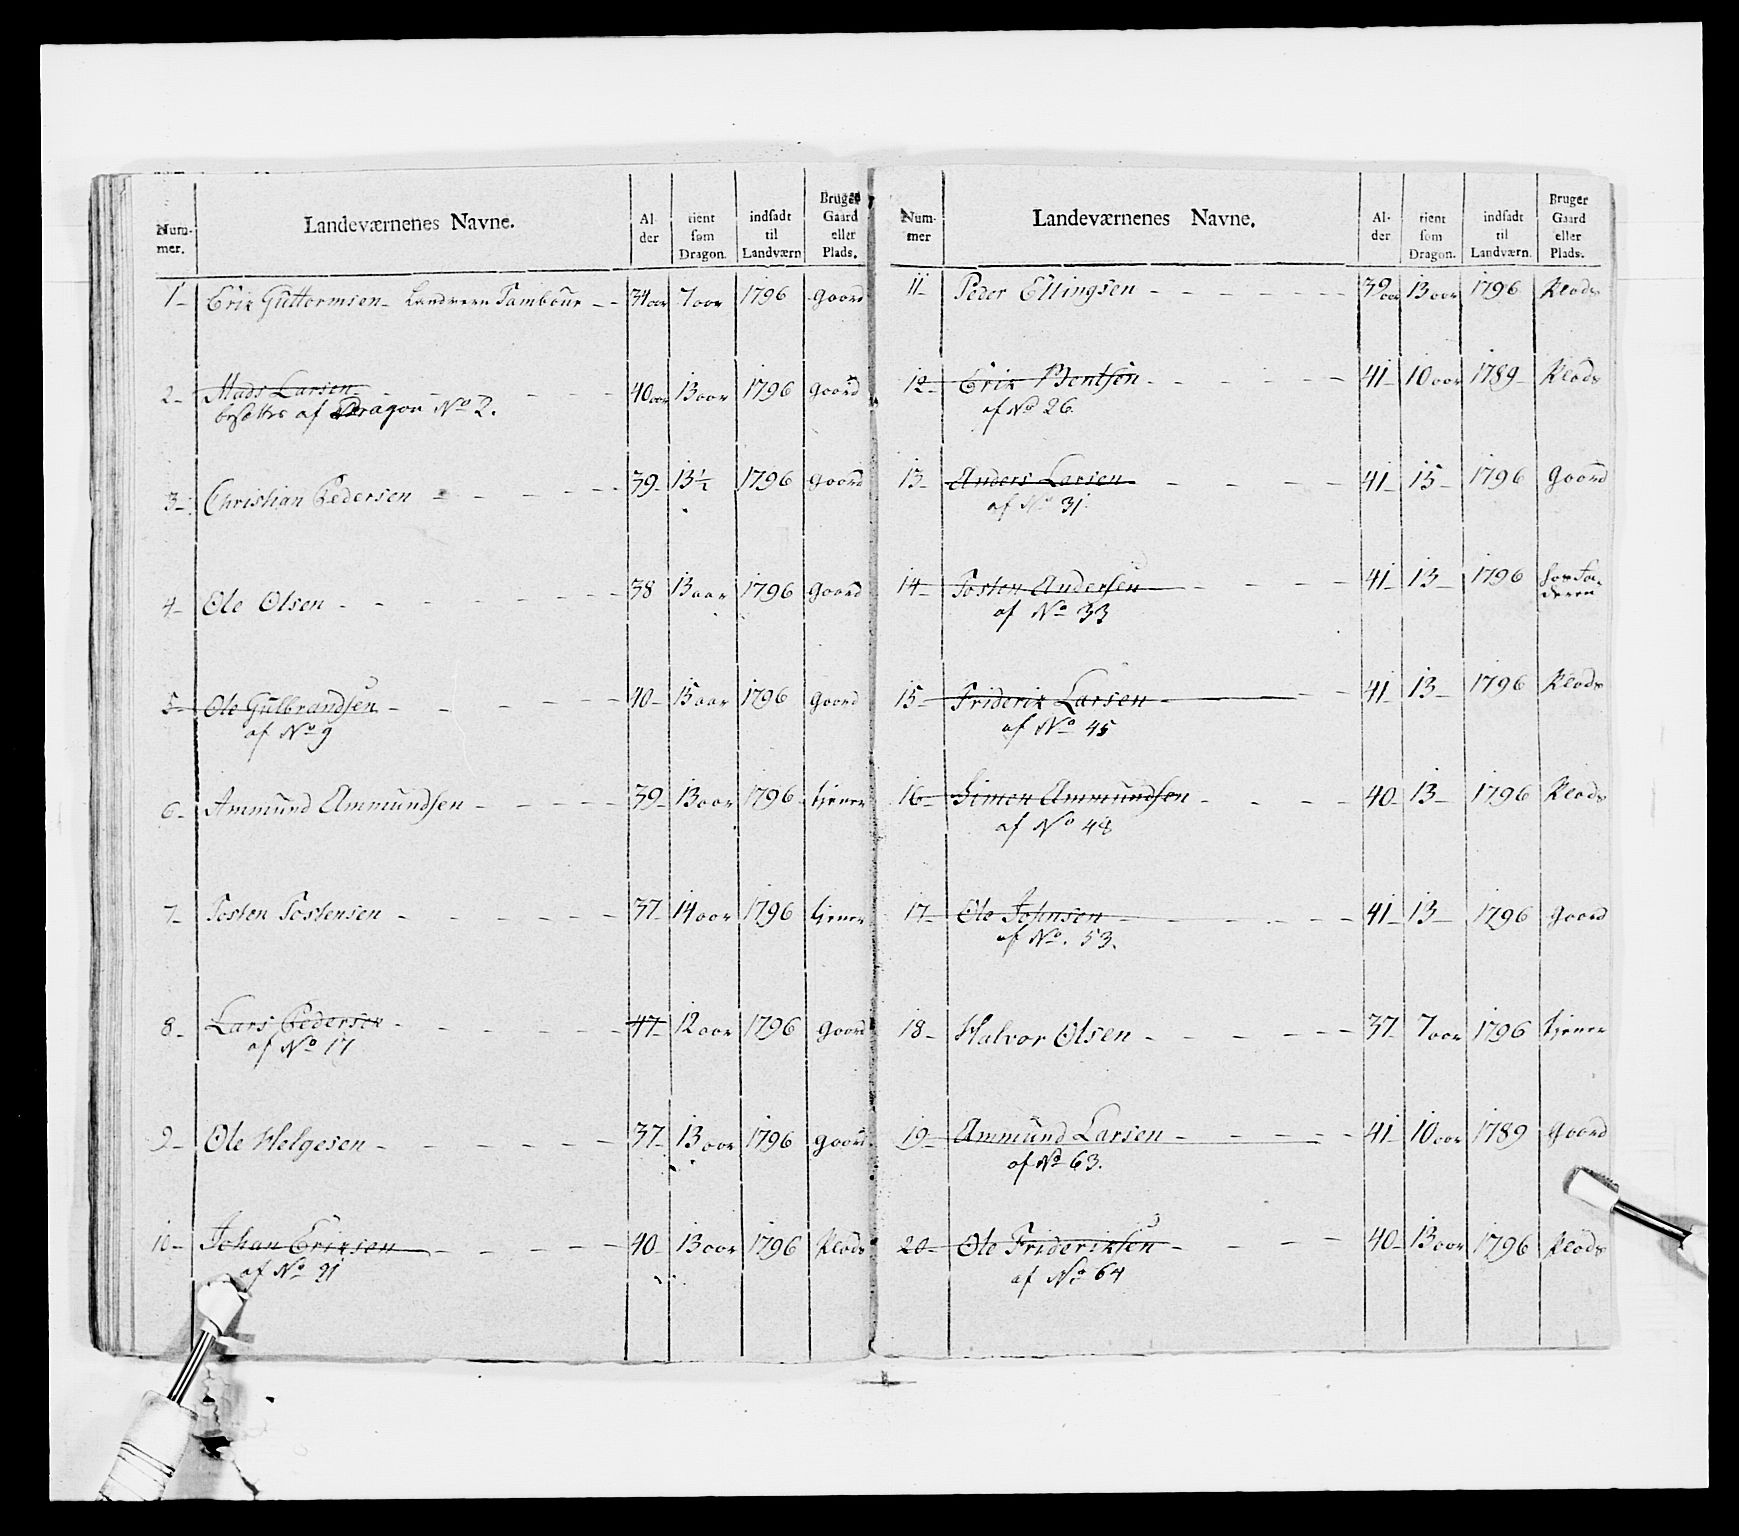 Num-
mer.
Landeværnenes Navne.
Al-
der
tient
som
Dragon.
indsadt
til
Landværn
Bruger
Gaard
eller
Plads.
1- Erik Guttormsen - Landvern Tambour - - 34 aar 7 aar 1796 gaard
2- Mads Larsen - - - - 40 aar 13 aar 1796 gaard
besættes af Dragon No 2.
3- Christian Pedersen - - - - 39- 13½ 1796 gaard
4- Ole Olsen - - - - 38 13 aar 1796 gaard
5- Ole Gulbrandsen - - - - 40- 15 aar 1796 gaard
af No 9
6- Ammund Ammundsen - - - - 39- 13 aar 1796 tjener
7- Tosten Tostensen - - - - 37 14 aar 1796 tjener
8- Lars Pedersen - - - - 47- 12 aar 1796 gaard
af No 17
9- Ole Helgesen - - - - 37- 13 aar 1796 gaard
10- Johan Eriksen - - - - 40- 13 aar 1796 Plads
af No 21
Num-
mer
Landeværnenes Navne.
Al-
der
tient
som
Dragon.
indsadt
til
Landværn.
Bruger
Gaard
eller
Plads.
11- Peder Ellingsen - - - - 39 aar 13 aar 1796 Plads
12- Erik Bentsen - - - - 41- 10 aar 1789- Plads
af No 26
13- Anders Larsen - - - - 41- 15- 1796 gaard
af No 31
14- Tosten Andersen - - - - 41- 13- 1796
af No 33
15- Friderik Larsen - - - 41- 13- 1796 Plads
af No 45
16- Simen Ammundsen - - - - 40- 13- 1796 Plads
af No 48
17- Ole Johnsen - - - - 41- 13- 1796 gaard
af No. 53.
18- Halvor Olsen - - - - 37- 7 aar 1796 tjener
19- Ammund Larsen - - - - 41- 10 aar 1789 gaard
af No 63.
20- Ole Frideriksen - - - - 40- 13 aar 1796 Plads
af No 64